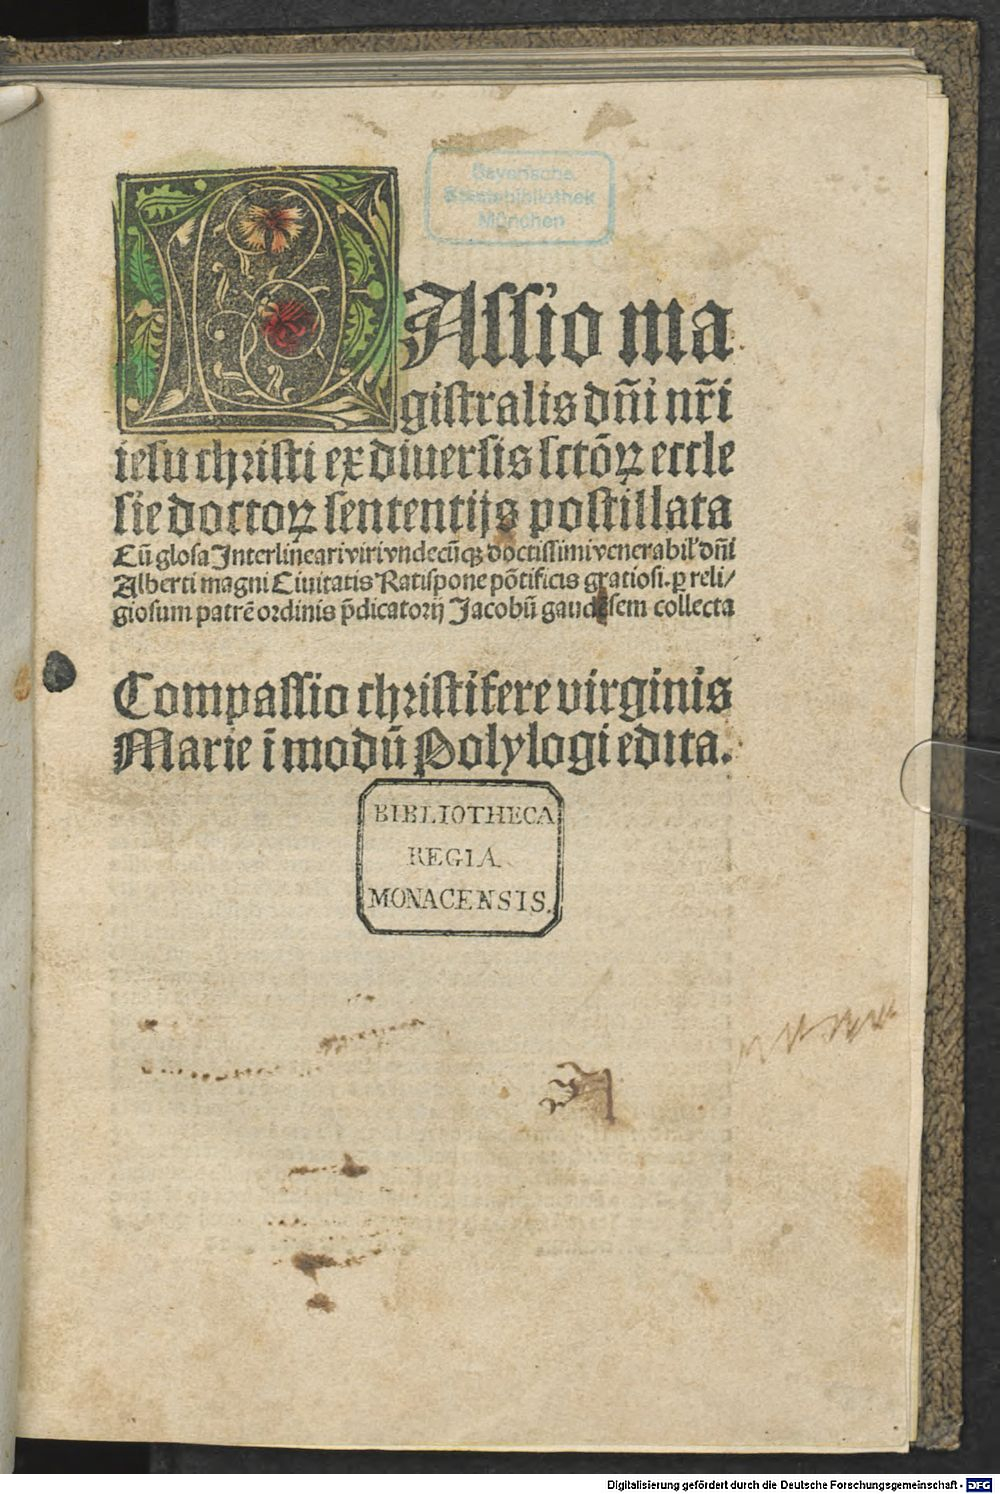 Bayerische
Staatsbibliothek
München
PAssio ma
gistralis dñi nr̃i
iesu christi ex diuersis sctõꝝ eccle
sie doctoꝝ sententijs postillata
Cũ glosa Interlineari viri vndecũqꝫ doctissimi venerabil' dñi
Alberti magni Ciuitatis Ratispone põtificis gratiosi. ꝑ reli/
giosum patrẽ ordinis p̃dicatorij Jacobũ gaudẽsem collecta
Compassio christifere virginis
Marie ĩ modũ Polylogi edita.
BIBLIOTHECA
REGIA
MONACENSIS.
Digitalisierung gefördert durch die Deutsche Forschungsgemeinschaft - DFG